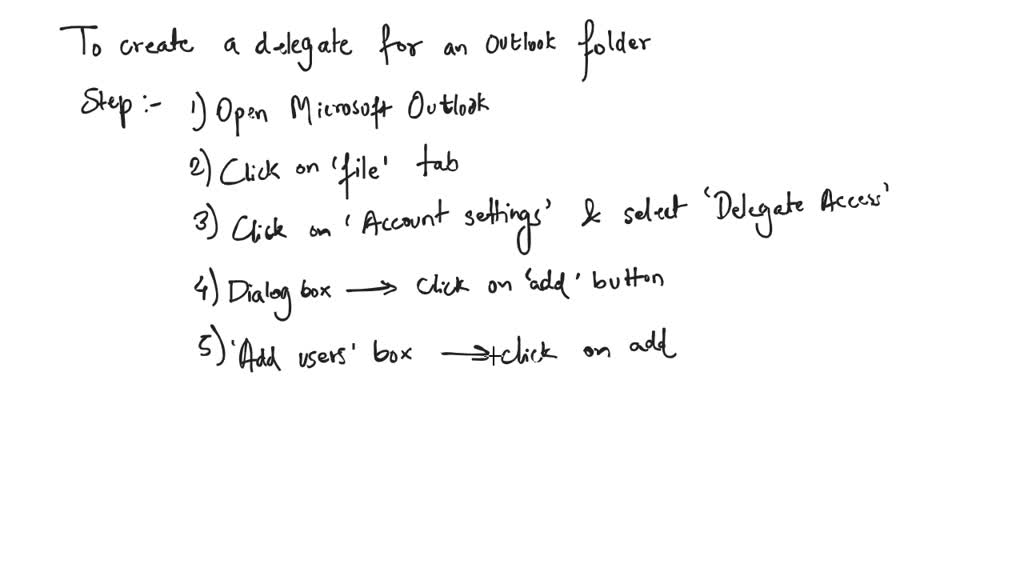 To create a delegate for an Outlook folder
Step :- 1) Open Microsoft Outlook
2) Click on 'file' tab
3) Click on 'Account settings' & select 'Delegate Access'
4) Dialog box → Click on 'add' button
5) 'Add users' box → click on add